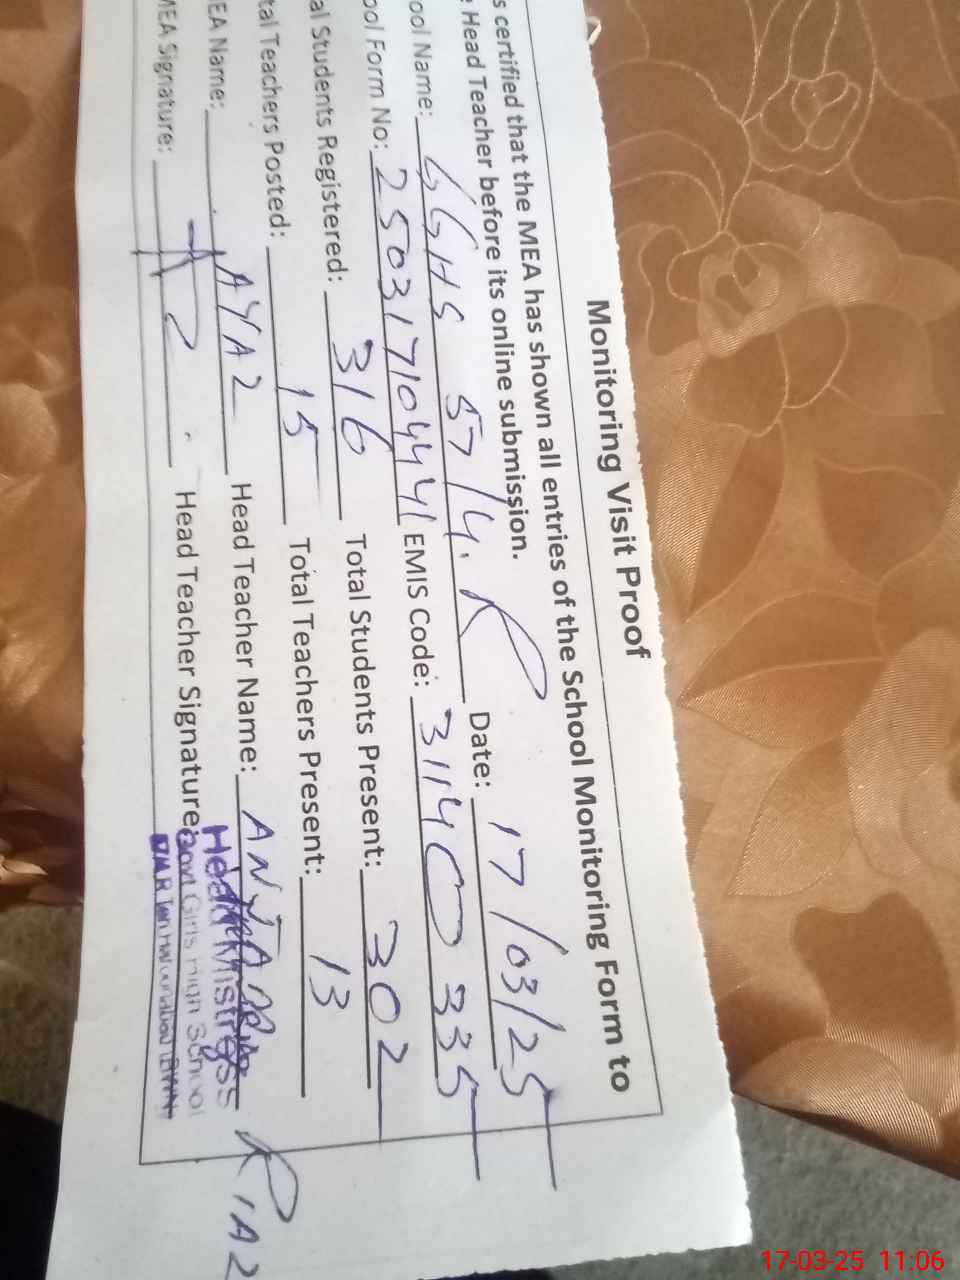 Monitoring Visit Proof
s certified that the MEA has shown all entries of the School Monitoring Form to
Head Teacher before its online submission.
ool Name: GGHS 57/4.R Date: 17/03/25
ool Form No: 25031710441 EMIS Code: 31140335
al Students Registered: 316 Total Students Present: 302
tal Teachers Posted: 15 Total Teachers Present: 13
EA Name: AYAZ Head Teacher Name: RIAZ
MEA Signature: Head Teacher Signature:
Head Mistress
Govt Girls High School
17-03-25 11:06